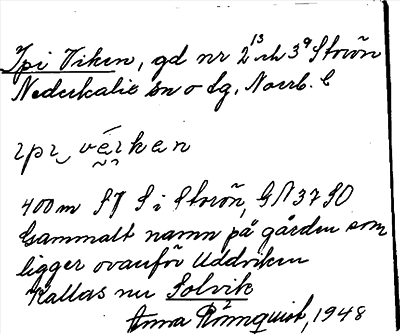 Ipi Viken, gd nr 2¹³ och 3⁹ Storön
Nederkalix sn o lg, Norrb. l
ɪpɪ‿ véɪkən
400 m SV S i Storön, GN 37 SO
Gammalt namn på gården som
ligger ovanför Uddviken
Kallas nu Solvik
Anna Rönnquist, 1948